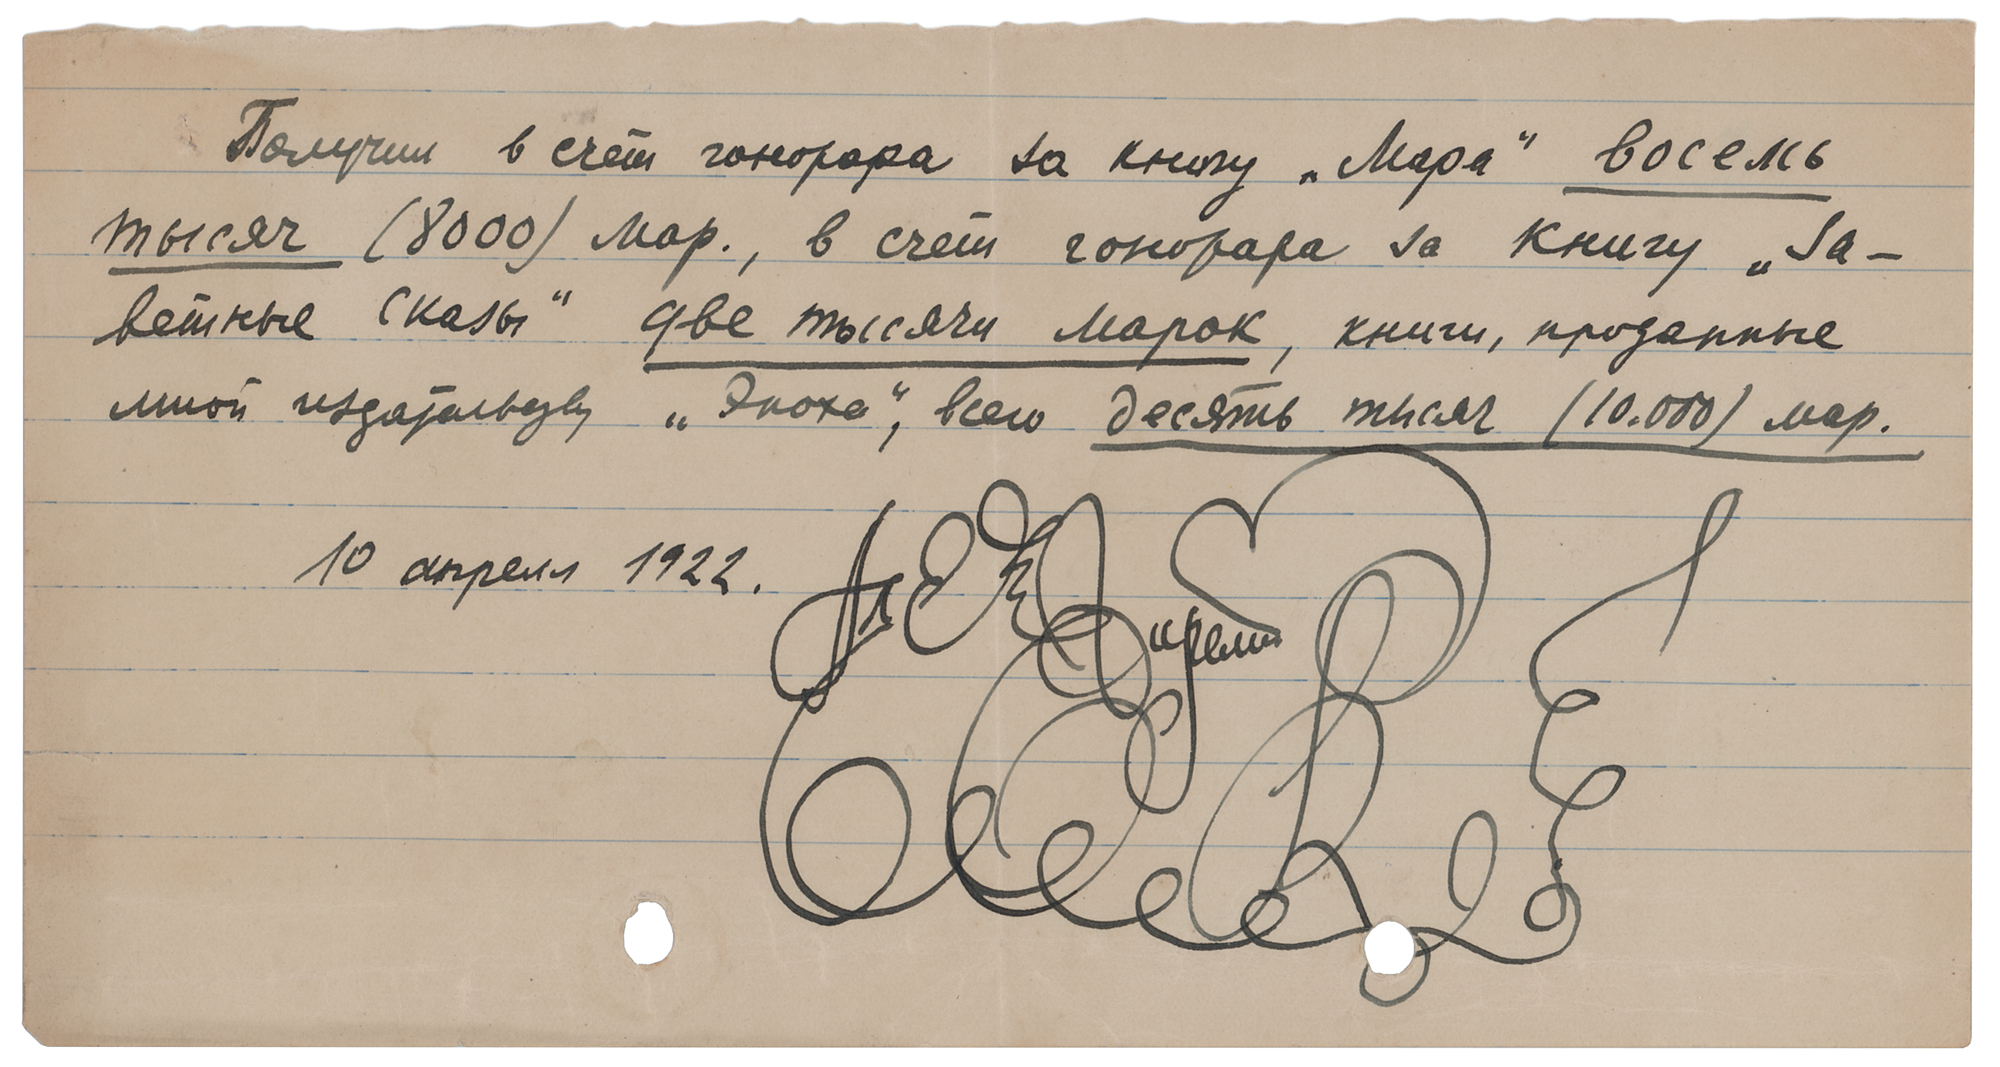 Получил в счёт гонорара за книгу „Мара“ восемь
тысяч (8000) мар., в счёт гонорара за книгу „За-
ветные сказы“ две тысячи марок, книги, проданные
мной издательству „Эпоха“, всего десять тысяч (10.000) мар.
10 апреля 1922.
Алексей
Ремизов